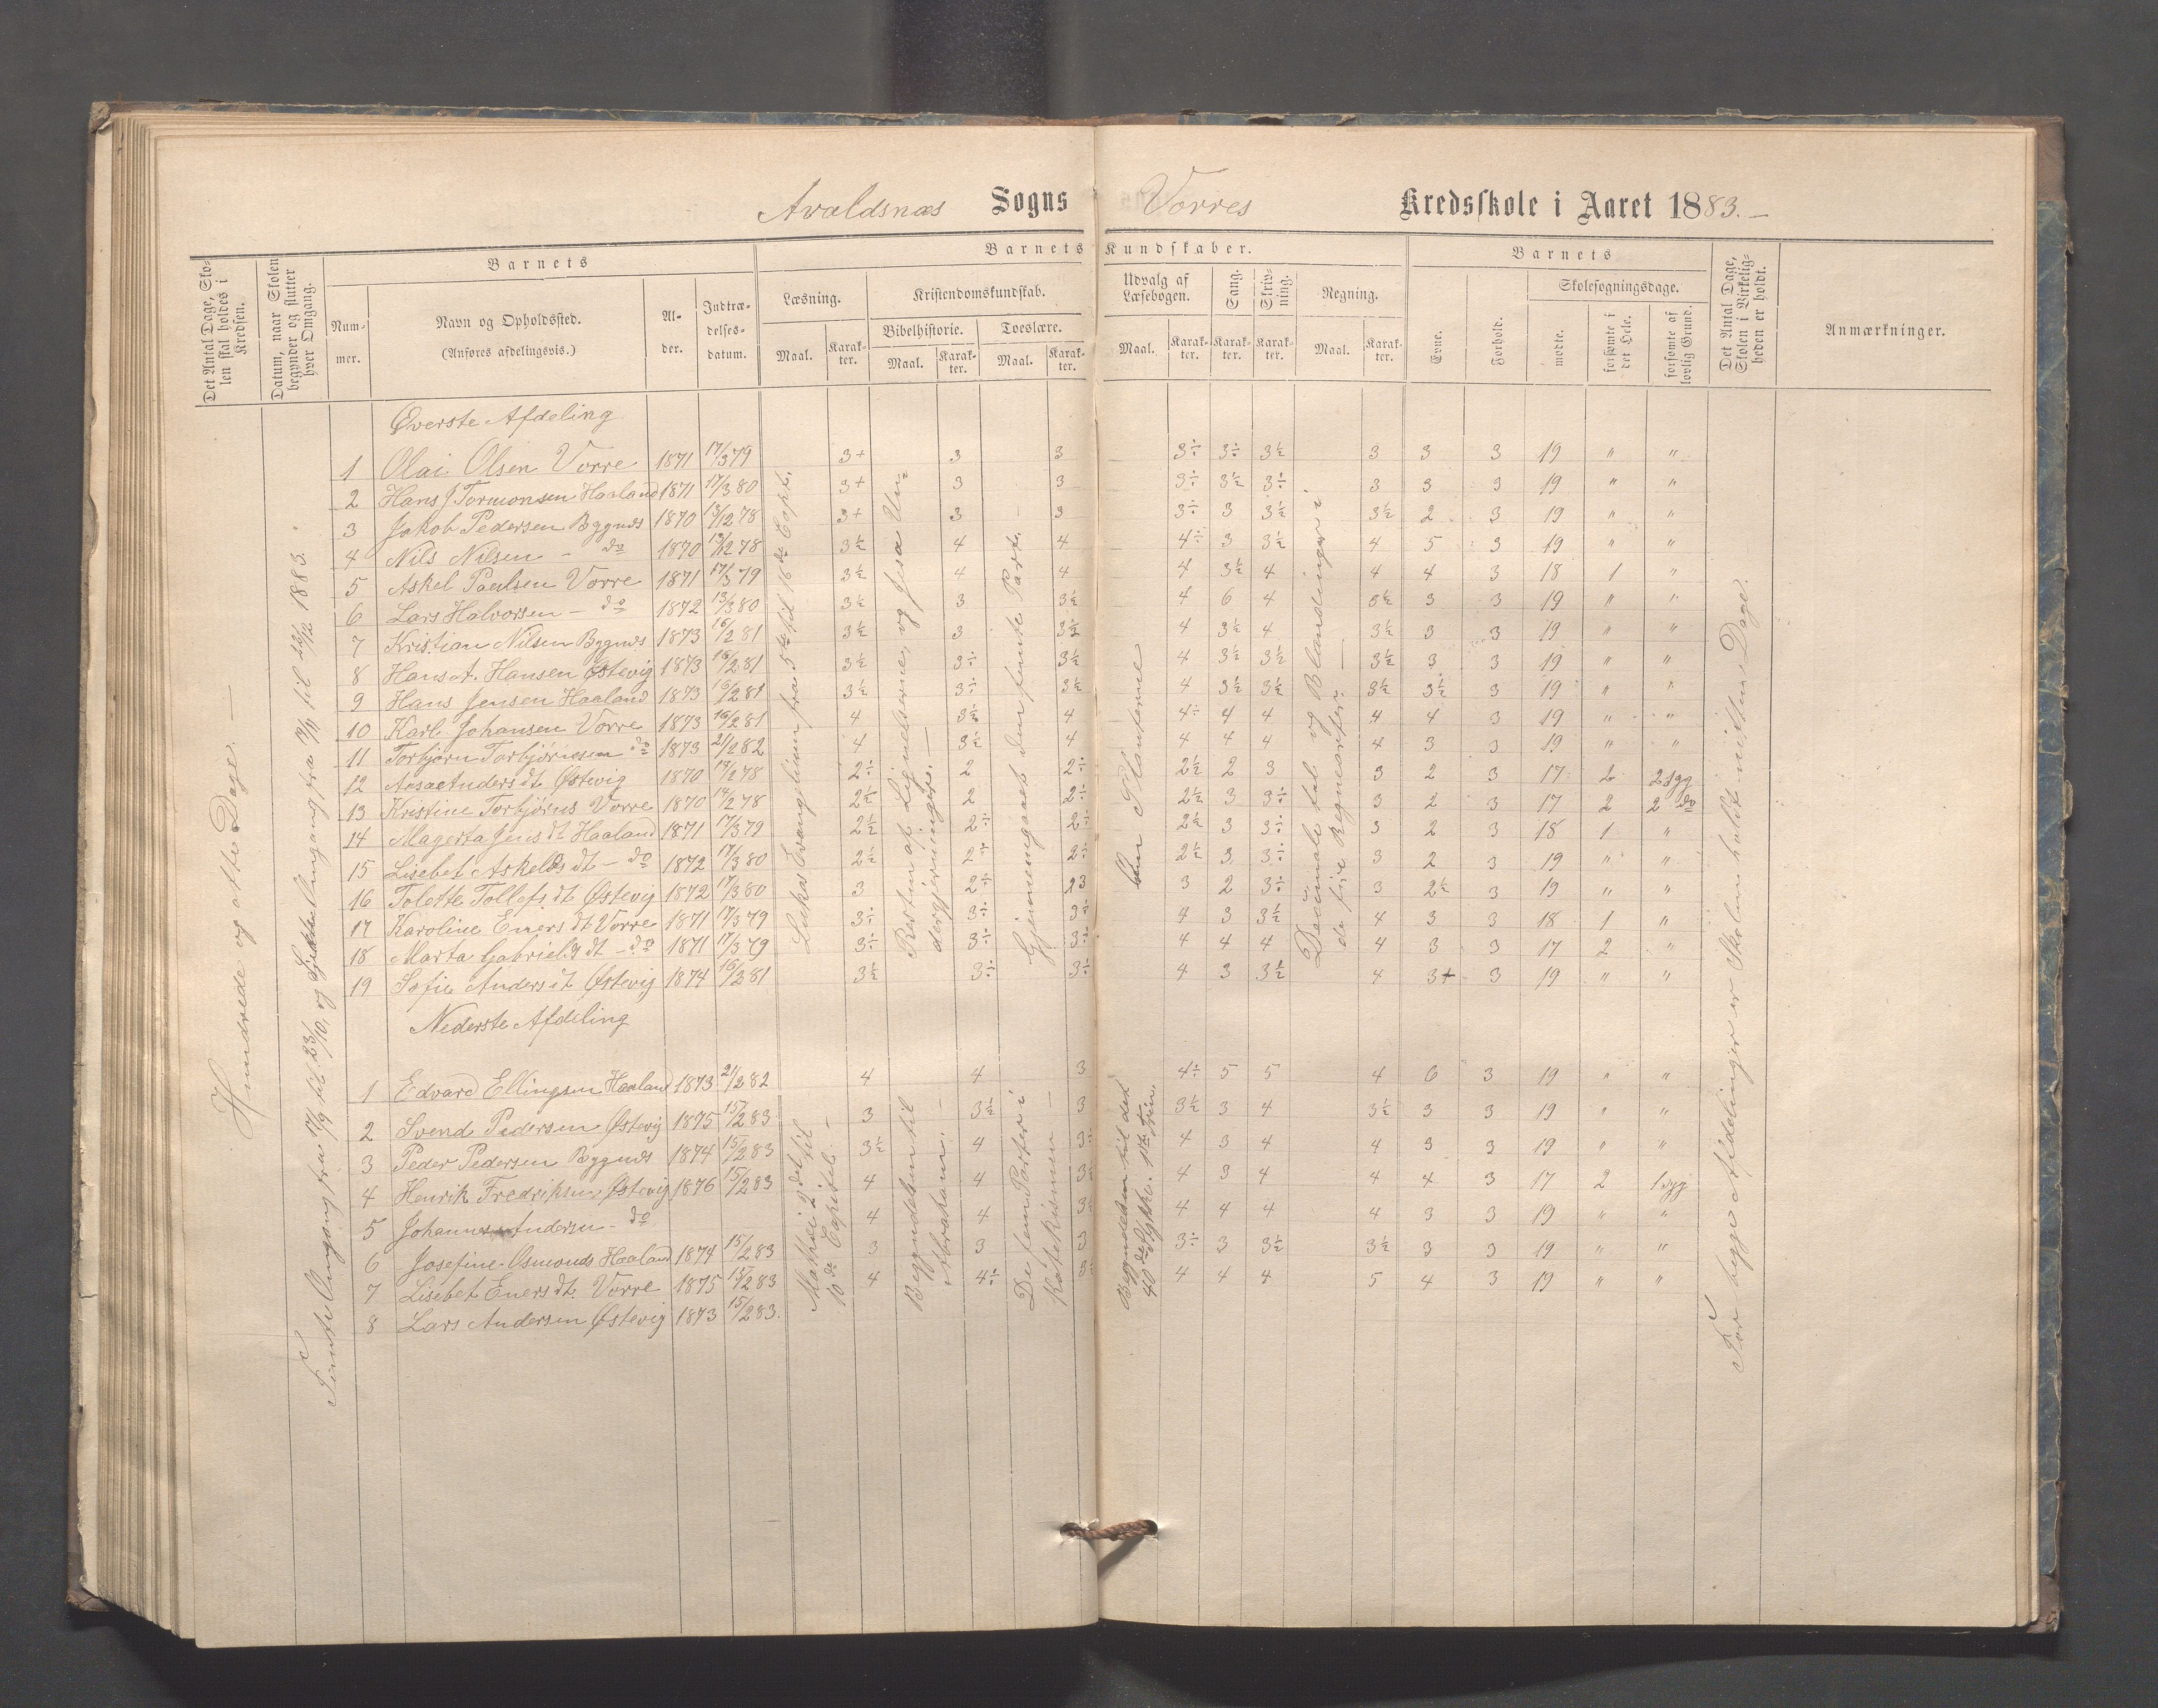 Avaldsnæs Sogns Vorres Kredsskole i Aaret 1883.
Det Antal Dage, Skolen skal holdes i Kredsen.
Datum, naar Skolen begynder og slutter hver Omgang.
Barnets
Nummer.
Navn og Opholdssted.
(Anføres afdelingsvis.)
Alder.
Indtrædelsesdatum.
Barnets Kundskaber.
Læsning.
Maal. Karakter.
Kristendomskundskab.
Bibelhistorie. Troeslære.
Maal. Karakter. Maal. Karakter.
Udvalg af Læsebogen.
Maal. Karakter.
Sang. Karakter.
Skrivning. Karakter.
Regning.
Maal. Karakter.
Barnets
Evne. Forhold.
Skolesøgningsdage.
mødte. forsømte i det Hele. forsømte af lovlig Grund.
Det Antal Dage, Skolen i Virkeligheden er holdt.
Anmærkninger.
Hundrede og otte Dage. —
Femte Omgang fra 17/9 til 23/10, og Sjette Omgang fra 19/11 til 22/12 1883.
Øverste Afdeling
1 Olai Olsen Vorre 1871 17/3 79 3+ 3 3 3÷ 3÷ 3½ 3 3 3 19 " "
2 Hans J Tormonsen Haaland 1871 17/3 80 3+ 3 3 3÷ 3½ 3÷ 3 3 3 19 " "
3 Jakob Pedersen Bygnes 1870 13/12 78 3+ 3 3 3÷ 3 3½ 3½ 2 3 19 " "
4 Nils Nilsen - do 1870 13/12 78 3½ 4 4 4÷ 3 3½ 4 5 3 19 " "
5 Askel Paulsen Vorre 1871 17/3 79 3½ 4 4 4 3½ 4 4 4 3 18 1 "
6 Lars Halvorsen - do 1872 13/3 80 3½ 3 3½ 4 6 4 3½ 3 3 19 " "
7 Kristian Nilsen Bygnes 1873 16/2 81 3½ 3 3½ 4 3½ 4 3½ 3 3 19 " "
8 Hans A. Hansen Østevig 1873 16/2 81 3½ 3÷ 3½ 4 3½ 3½ 3½ 3 3 19 " "
9 Hans Jensen Haaland 1873 16/2 81 3½ 3÷ 3½ 4 3½ 3½ 3½ 3½ 3 19 " "
10 Karl Johansen Vorre 1873 16/2 81 4 3½ 4 4÷ 4 4 4 4 3 19 " "
11 Torbjørn Torbjørnsen do 1873 21/2 82 4 3½ 4 4 4 4 4 3 3 19 " "
12 Anders dt. Østevig 1870 14/2 78 2÷ 2 2÷ 2½ 2 3 3 2 3 17 2 2 syg
13 Kristine Torbjørns Vorre 1870 14/2 78 2½ 2 2÷ 2½ 3 3÷ 3 2 3 17 2 2 do
14 Magerta Jens dt. Haaland 1871 17/3 79 2½ 2÷ 2÷ 2½ 3 3÷ 3 2 3 18 1 "
15 Lisebet Askelds dt - do 1872 17/3 80 2½ 2÷ 2÷ 2½ 3 3÷ 3 2 3 19 " "
16 Tolette Tollefs dt Østevig 1872 17/3 80 3 2÷ 23 3 2 3÷ 3 2½ 3 19 " "
17 Karoline Eners dt Vorre 1871 17/3 79 3÷ 3÷ 3÷ 4 3 3½ 4 3 3 18 1 "
18 Marta Gabriels dt - do 1871 17/3 79 3÷ 3÷ 3÷ 4 4 4 4 3 3 17 2 "
19 Sofie Anders dt Østevig 1874 16/2 81 3½ 3÷ 3÷ 4 3 3½ 4 3+ 3 19 " "
Lukas Evangelium fra 5te til 16de Capt.
Resten af Lignelserne, og Jesu Undergjerninger. —
Gjennemgaaet den femte Part.
Om Planterne
Decimaltal og Blandinger i de fire Regnearter. —
Nederste Afdeling
1 Edvard Ellingsen Haaland 1873 21/2 82 4 4 3 4÷ 5 5 4 6 3 19 " "
2 Svend Pedersen Østevig 1875 15/2 83 3 3½ 3 3½ 3 4 3½ 3 3 19 " "
3 Peder Pedersen Bygnes 1874 15/2 83 3½ 4 3÷ 4 3 4 4 3 3 19 " "
4 Henrik Fredriksen Østevig 1876 15/2 83 4 4 3½ 4 3 4 4 4 3 17 2 1 syg
5 Johannes Andersen - do 4 4 3½ 4 4 4 4 3 3 19 " "
6 Josefine Osmonds Haaland 1874 15/2 83 3 3 3 3÷ 3 3½ 3½ 3 3 19 " "
7 Lisebet Eners dt. Vorre 1875 15/2 83 4 4÷ 3½ 4 4 4 5 4 3 19 " "
8 Lars Andersen Østevig 1873 15/2 83.
Mathæi 2det til 10de Capitel. —
Begyndelsen til Abraham. —
De fem Parter i Katekismen —
Begyndelsen til det 40de Stykke. 1ste Trin.
For begge Afdelinger er Skolen holdt nitten Dage.